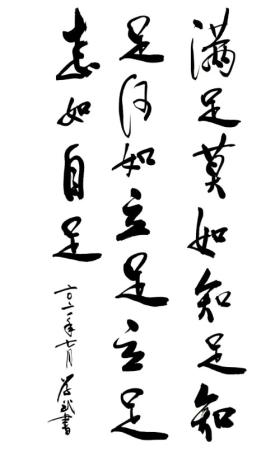 满足莫如知足知
足何如立足立足
怎如自足
二〇二一年七月 武書